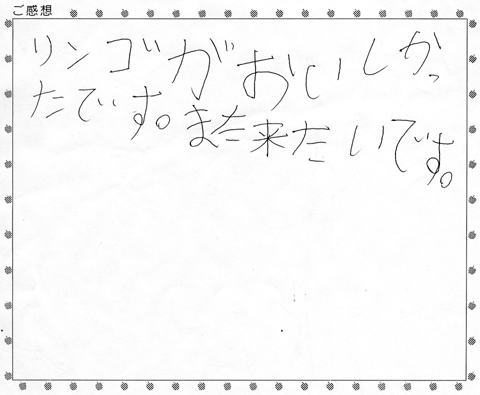 ご感想
リンゴがおいしかっ
たです。また来たいです。